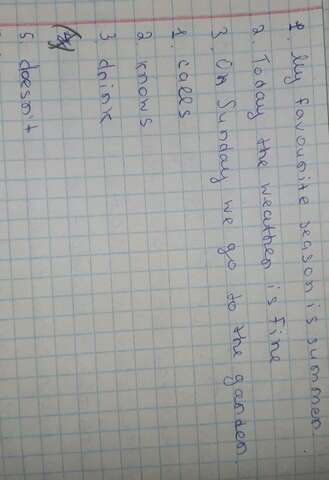 1. My favourite season is summer
2. Today the weather is fine
3. On Sunday we go to the garden.
1. calls
2. knows
3 drink
5. doesn't